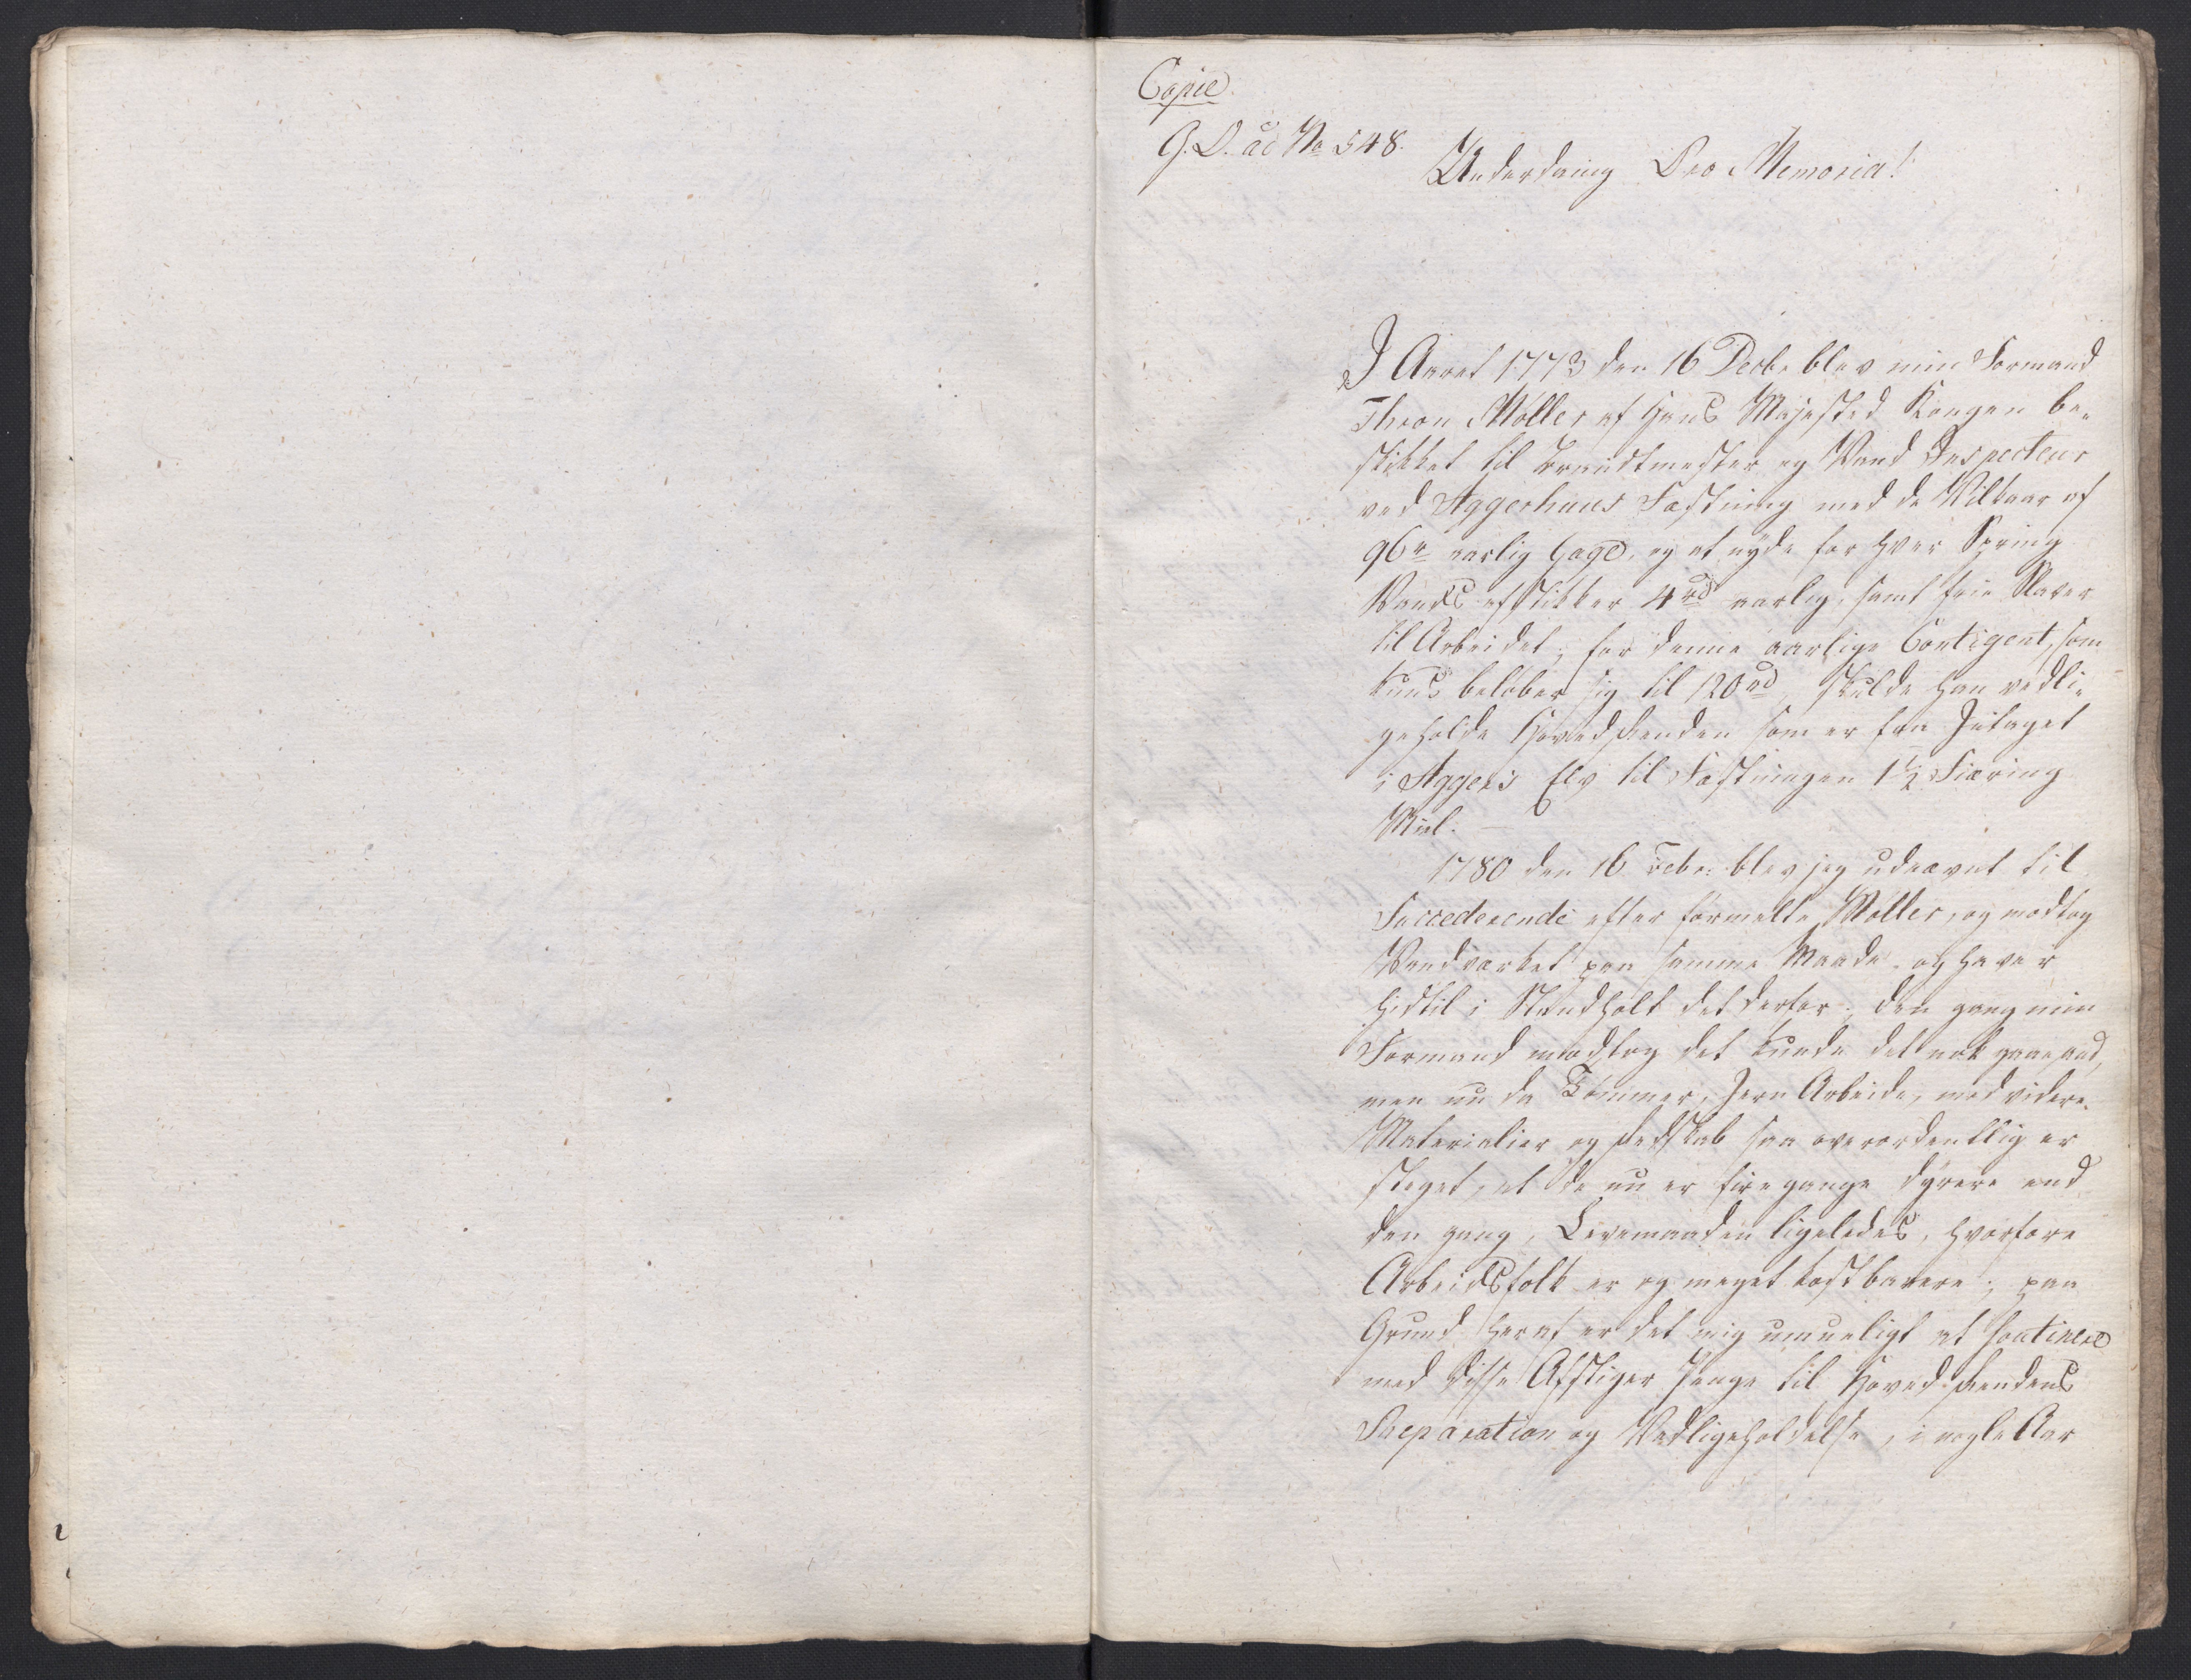 Copie
G. D. ad No 548.
Underdanig Pro Memoria!
I Aaret 1773 den 16 Decbr blev min Formand
Thron Møller af Hans Majested Kongen be-
skikket til Brøndtmester og Vand Inspecteur
ved Aggerhuus Fæstning med de Vilkaar af
96 rd aarlig Gage, og at nyde for hver Spring
Vands afstikker 4 rd aarlig, samt frie Slaver
til Arbeidet; for denne aarlige Contigent, som
kuns beløber sig til 120 rd, skulde han vedli-
geholde Hovedrenden som er fra Intaget
i Aggers Elv til Fæstningen 1 1/2 Fiering
Miil. —
1780 den 16 Febr: blev jeg udnævnt til
Succederende efter formelte Møller, og modtog
Vandværket paa samme Maade og haver
hidtil i Standholt det derfor; den gang min
Formand modtog det kunde det nok gaae and,
men nu da Tømmer, Jern Arbeide, med videre
Materialier og Redskab saa overordentlig er
steget, at de nu er fire gange dyrere end
den gang, Levemaaden ligeledes, hvorfore
Arbeidsfolk er og meget kostbarere; paa
Grund heraf er det mig umueligt at Continere
med disse Afstiger Penge til Hoved-Rendens
Reparation og Vedligeholdelse, i nogle Aar